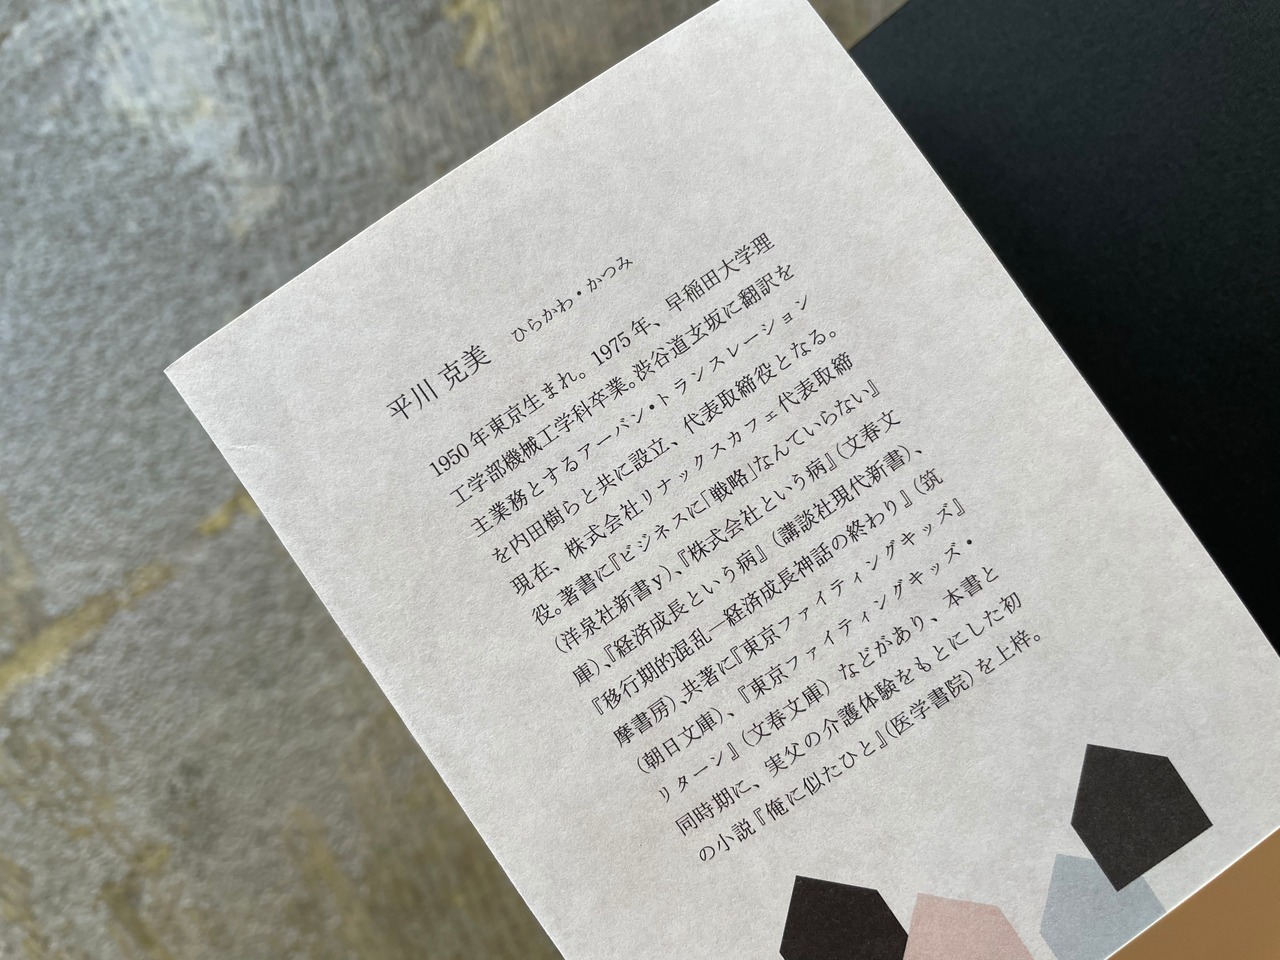 平川 克美 ひらかわ・かつみ
1950年東京生まれ。1975年、早稲田大学理
工学部機械工学科卒業。渋谷道玄坂に翻訳を
主業務とするアーバン・トランスレーション
を内田樹らと共に設立、代表取締役となる。
現在、株式会社リナックスカフェ代表取締
役。著書に『ビジネスに「戦略」なんていらない』
(洋泉社新書y)、『株式会社という病』(文春文
庫)、『経済成長という病』(講談社現代新書)、
『移行期的混乱―経済成長神話の終わり』(筑
摩書房)、共著に『東京ファイティングキッズ』
(朝日文庫)、『東京ファイティングキッズ・
リターン』(文春文庫)などがあり、本書と
同時期に、実父の介護体験をもとにした初
の小説『俺に似たひと』(医学書院)を上梓。